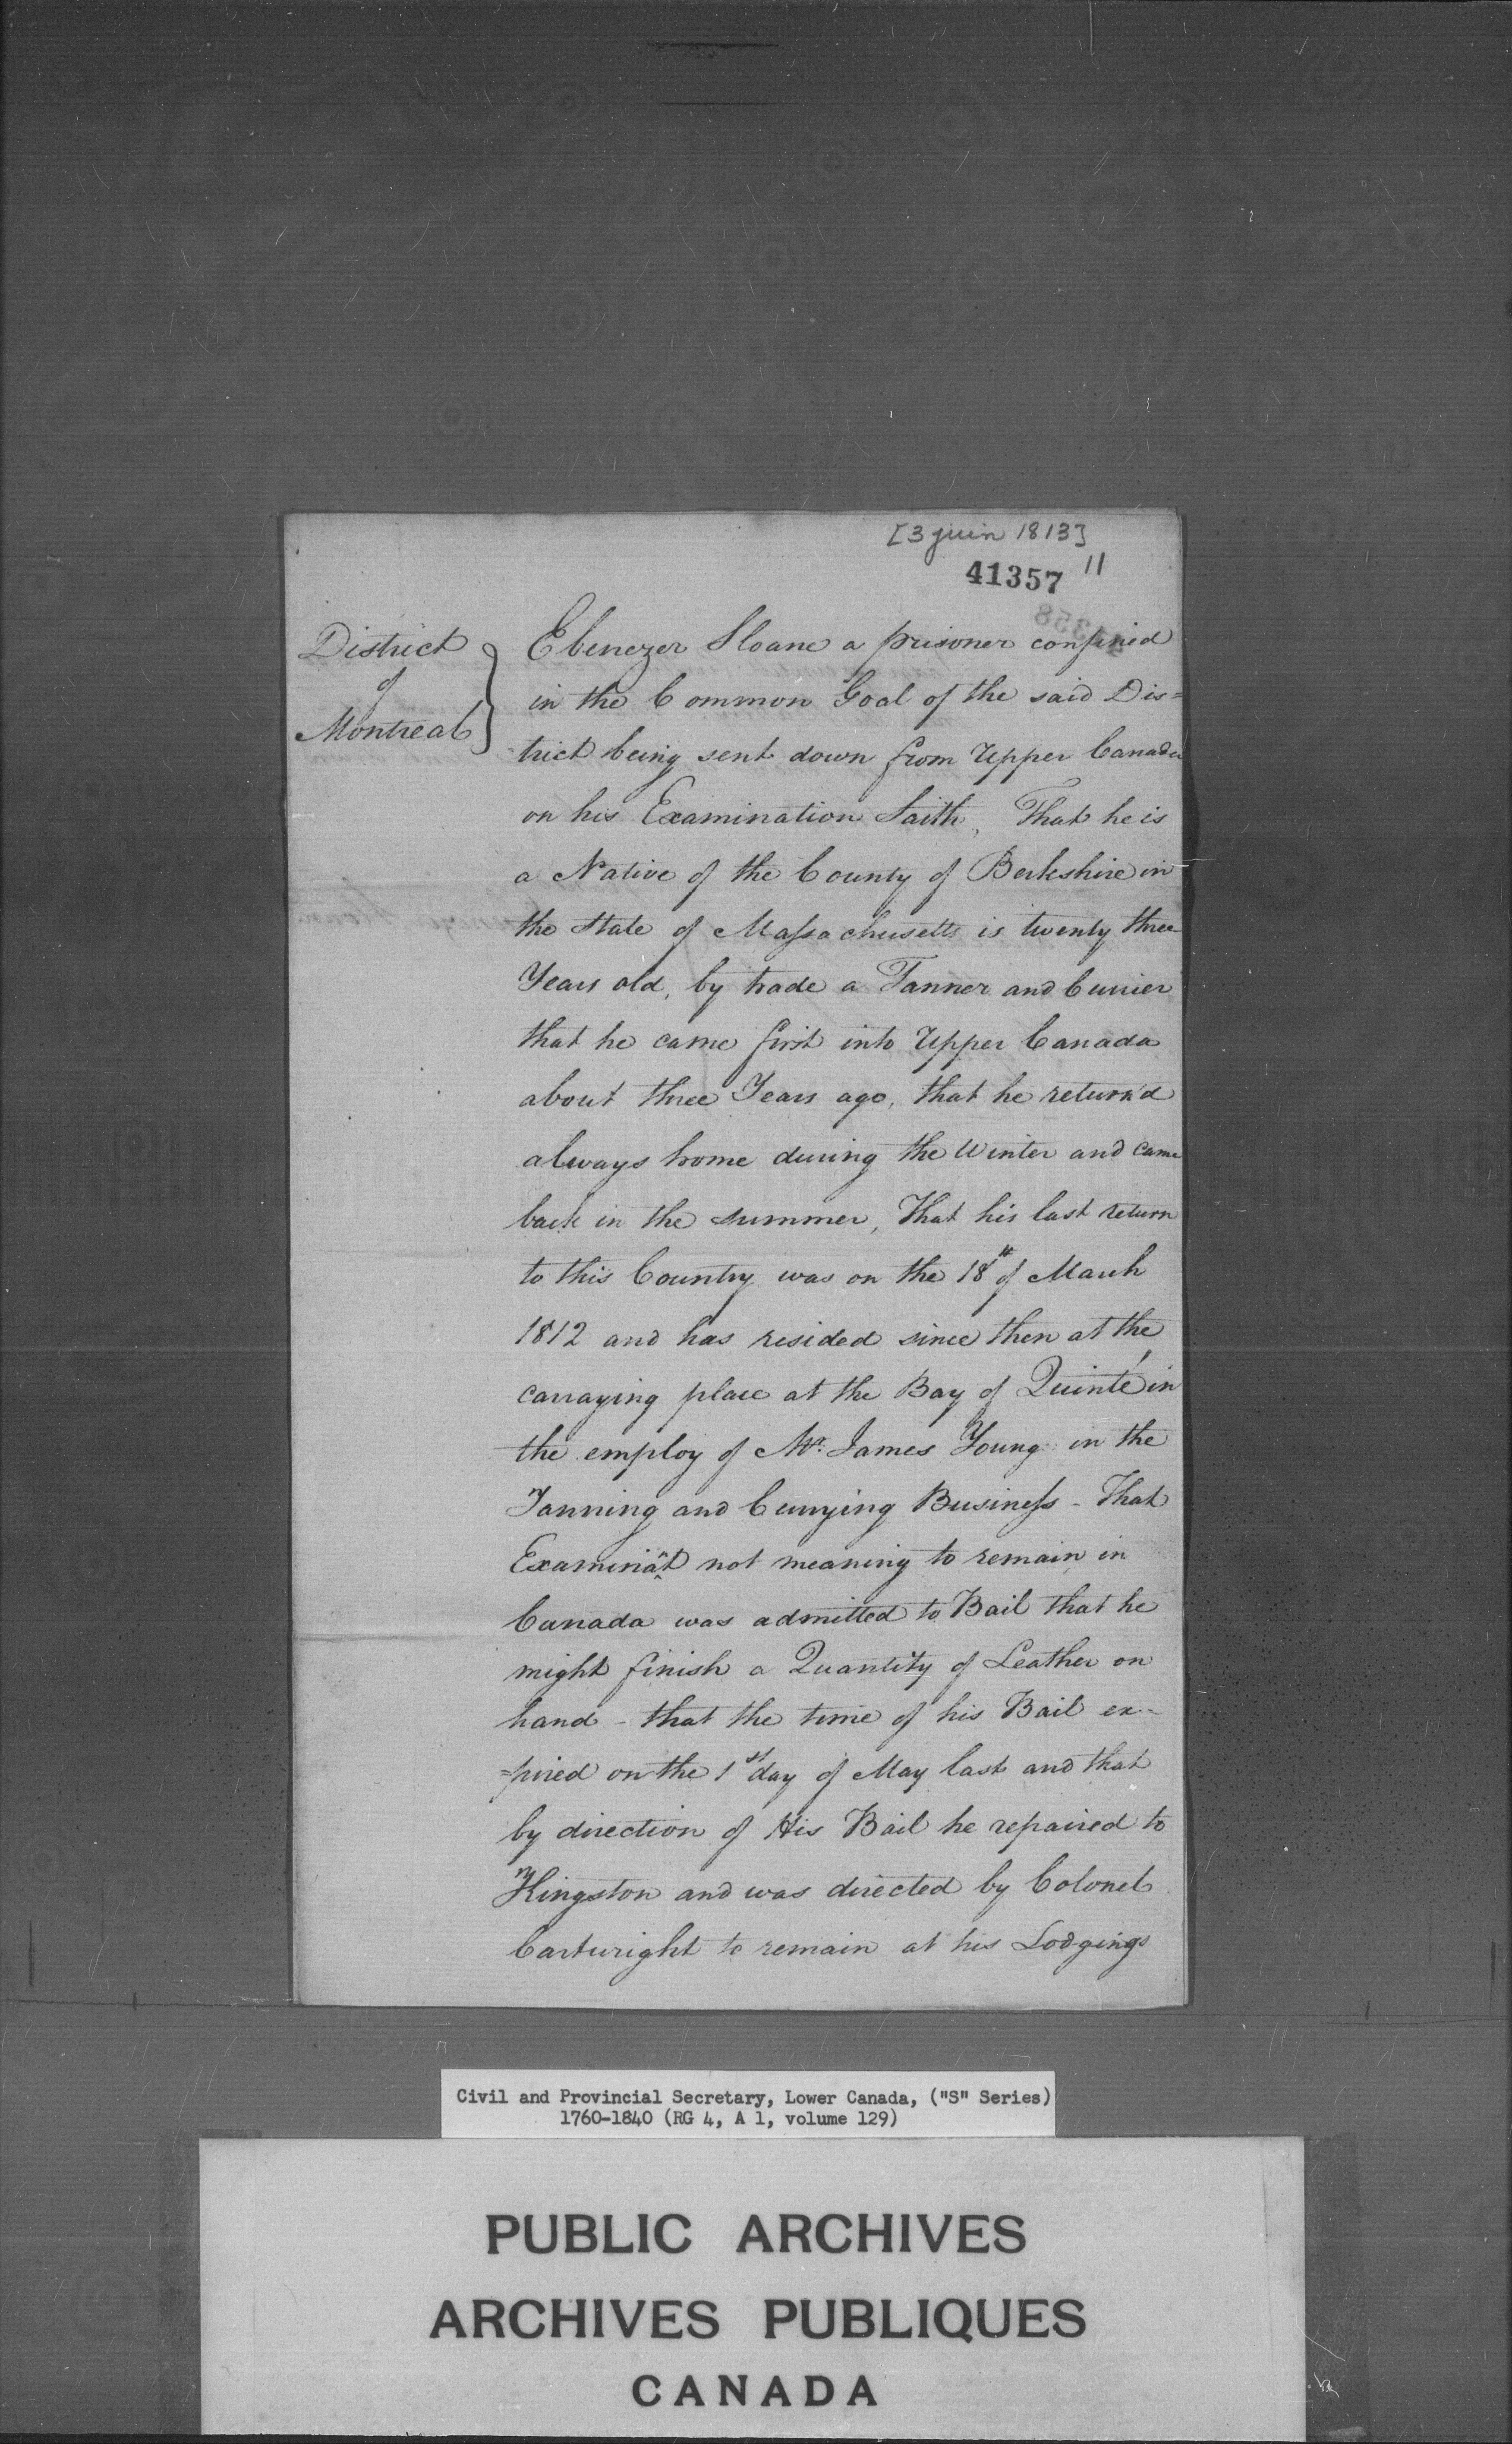 [3 juin 1813]
41357 11
District
of
Montreal
Ebenezer Sloane a prisoner confined
in the Common Goal of the said Dis=
trict being sent down from Upper Canada
on his Examination Saith, That he is
a Native of the County of Berkshire in
the State of Massachusetts is twenty three
Years old, by trade a Tanner and Currier
that he came first into Upper Canada
about three Years ago, that he return'd
always home during the Winter and came
back in the summer, That his last return
to this Country was on the 18th of March
1812 and has resided since then at the
carraying place at the Bay of Quinté in
the employ of Mr. James Young in the
Tanning and Currying Business - That
Examinant not meaning to remain in
Canada was admitted to Bail that he
might finish a Quantity of Leather on
hand - that the time of his Bail ex-
=pired on the 1st day of May last and that
by direction of His Bail he repaired to
Kingston and was directed by Colonel
Cartwright to remain at his Lodgings
Civil and Provincial Secretary, Lower Canada, ("S" Series)
1760-1840 (RG 4, A 1, volume 129)
PUBLIC ARCHIVES
ARCHIVES PUBLIQUES
CANADA